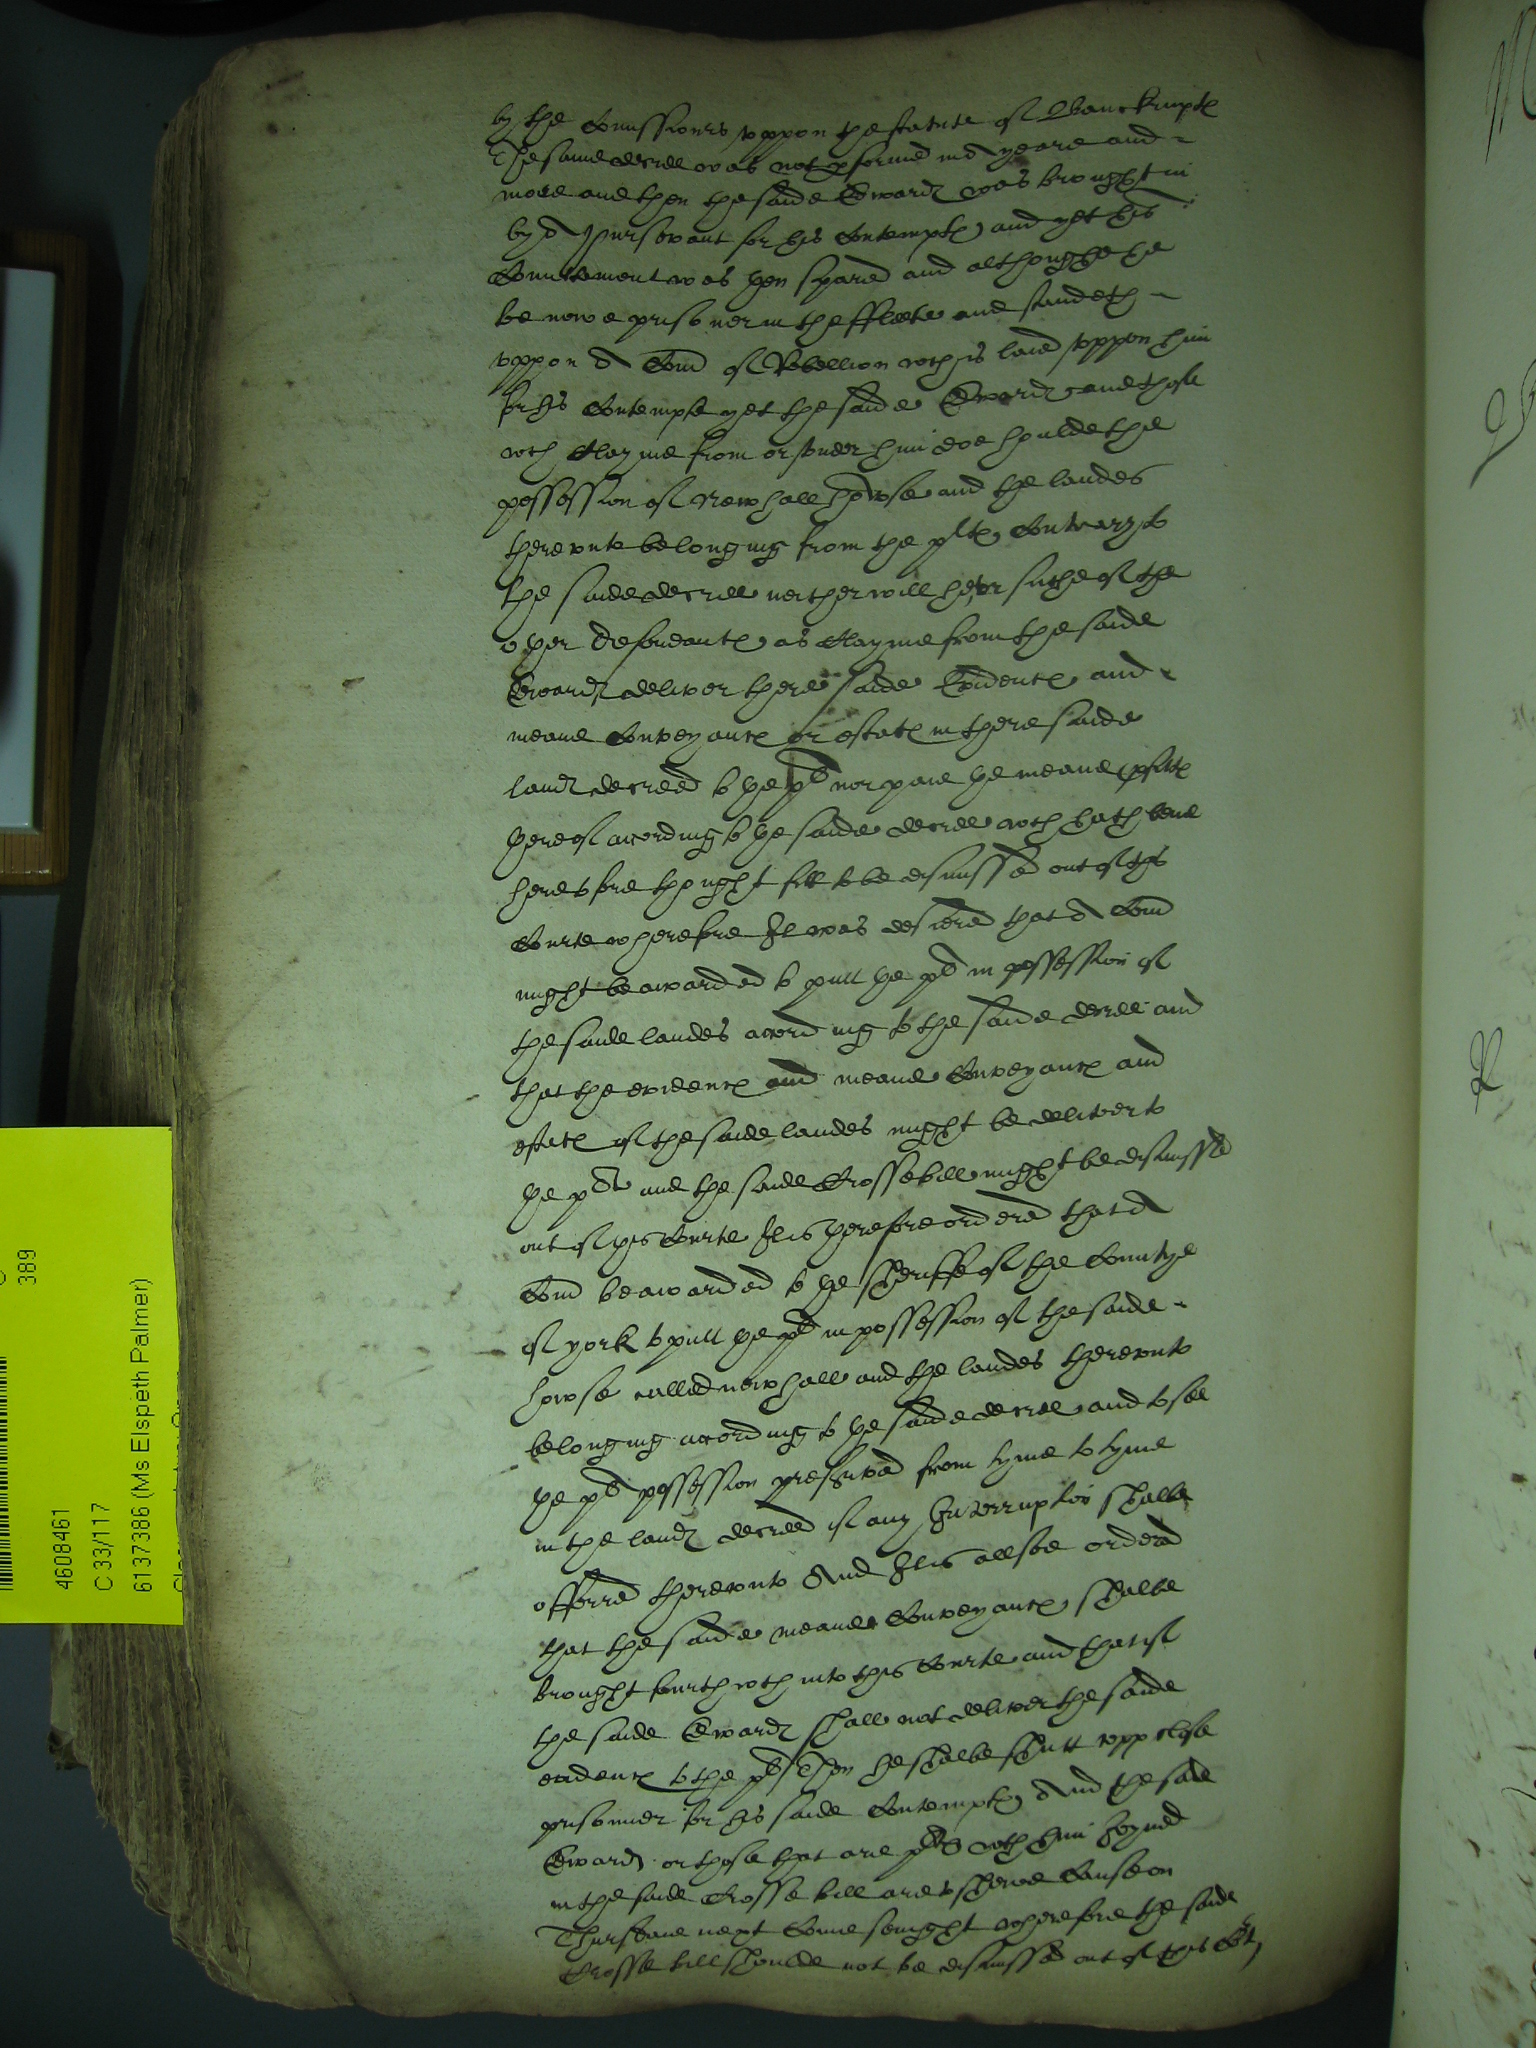 by the Comissioners uppon the statute of Banckrupte
The same decree was not pformed in a yeare and
more and then the saide Edward was brought in
by a Pursevant for his Contempte, and yet his
Comittement was then spared and althoughe he
be nowe prisoner in the Fleete and standeth
uppon a Com of Rebellion wch is laied uppon him
for his Contempte yet the saide Edward and those
wch clayme from or under him doe houlde the
possession of Newhall howse and the landes
thereunto belonging from the plte, Contrary to
the saide decree neither will he, or suche of the
other defendante, as clayme from the saide
Edward deliver there saide Evidence and
meane Conveyance or estate in there saide
land decreed to the pl nor paie the meane pfitte
thereof according to the saide decree wch hath bene
heretofore thought fitt to be dismissed out of this
Courte wherefore It was desiered that a Com
might be awarded to putt the pl in possession of
the saide landes according to the saide decree and
that the evidence and meane Conveyance and
estate of the saide landes might be deliver to
the pl and the saide Crosse bill might be dismissed
out of this Courte It is therefore ordered that a
Com be awarded to the Sheriffe of the Countye
of york to putt the pl in possession of the saide
howse called newhall and the landes thereunto
belonging according to the saide decree and to see
the pl possession preserved from tyme to tyme
in the land decreed if any Interruption shalbe
offerred thereunto And It is allsoe ordered
that the saide meane Conveyance shalbe
brought fourthwth into this Courte and that if
the saide Edward shall not deliver the saide
evidence to the pl Then he shalbe shutt upp close
prisonner for his saide Contempte, And the saide
Edward or those that are pl wth him Joyned
in the saide Crosse bill are to shewe Cause on
Thursdaie next Come senight wherefore the saide
Crosse bill shoulde not be dismissed out of this Crt
389
4608461
C 33/117
6137386 (Ms Elspeth Palmer)